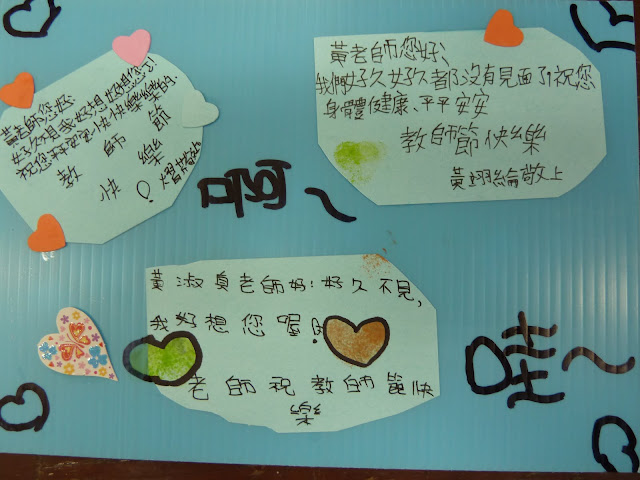 黃老師您好:
我好想好想您
快快樂樂的.
教師節
快樂!
黃老師您好、
我們好久好久都沒有見面了祝您
身體健康、平平安安
教師節快樂
黃翊綸敬上
黃淑貞老師好!好久不見,
我好想您喔!
老師祝教師節快
樂